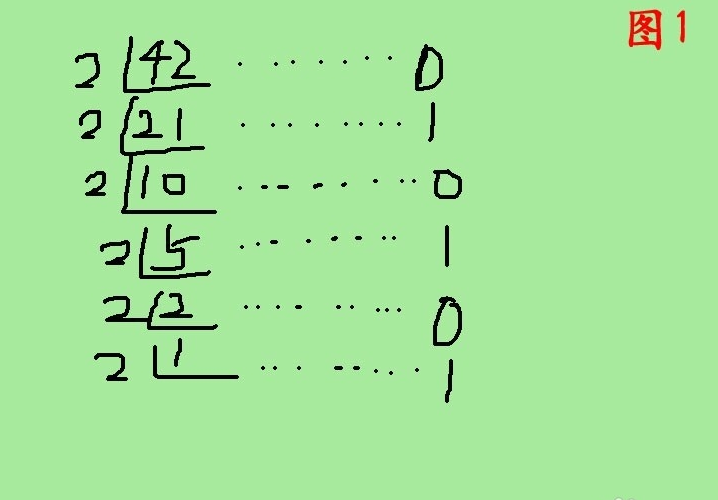 图1
2 42 ······· 0
2 21 ······· 1
2 10 ······· 0
2 5 ······· 1
2 2 ······· 0
2 1 ······· 1